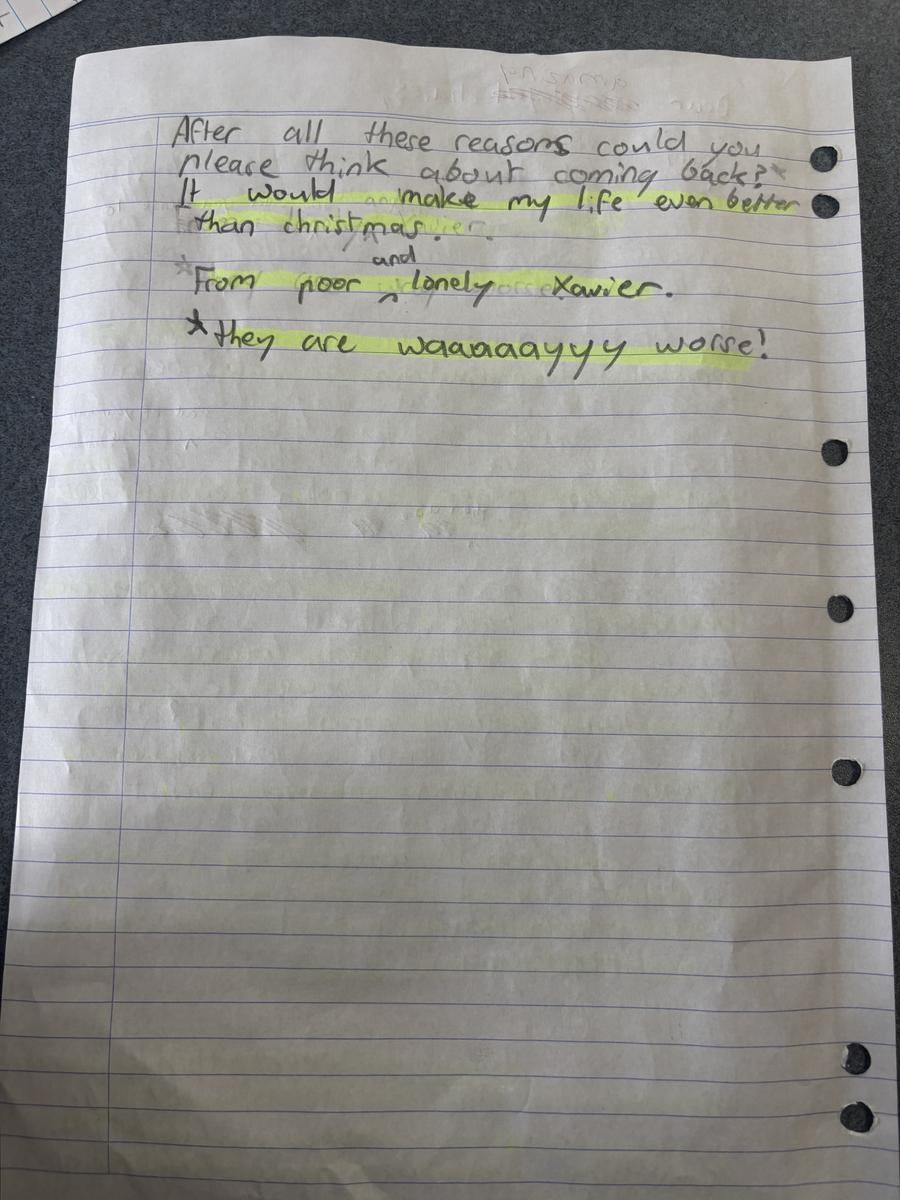 After all these reasons could you
please think about coming back?*
It would make my life even better
than christmas.
and
*From poor ^ lonely Xavier.
*they are waaaaaayyy worse!